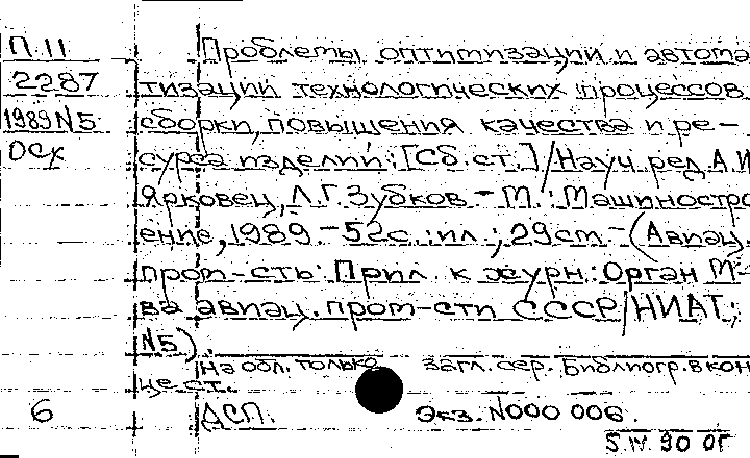 П 11
2287
1989 N5
ОСХ
Проблемы оптимизации и автома
тизации технологических процессов
сборки, повышения качества и ре-
сурса изделий: [Сб. ст.] / Науч. ред. А.И
Ярковец, Л.Г. Зубков - М.: Машиностро
ение, 1989. - 52с.: ил.; 29см. - (Авиац.
пром-сть: Прил. к журн.: Орган М-
ва авиац. пром-сти СССР / НИАТ;
N5).
На обл. только загл. сер. Библиогр. в кон
це ст.
6 ДСП. Экз. N000 006.
5.IV.90 ОГ